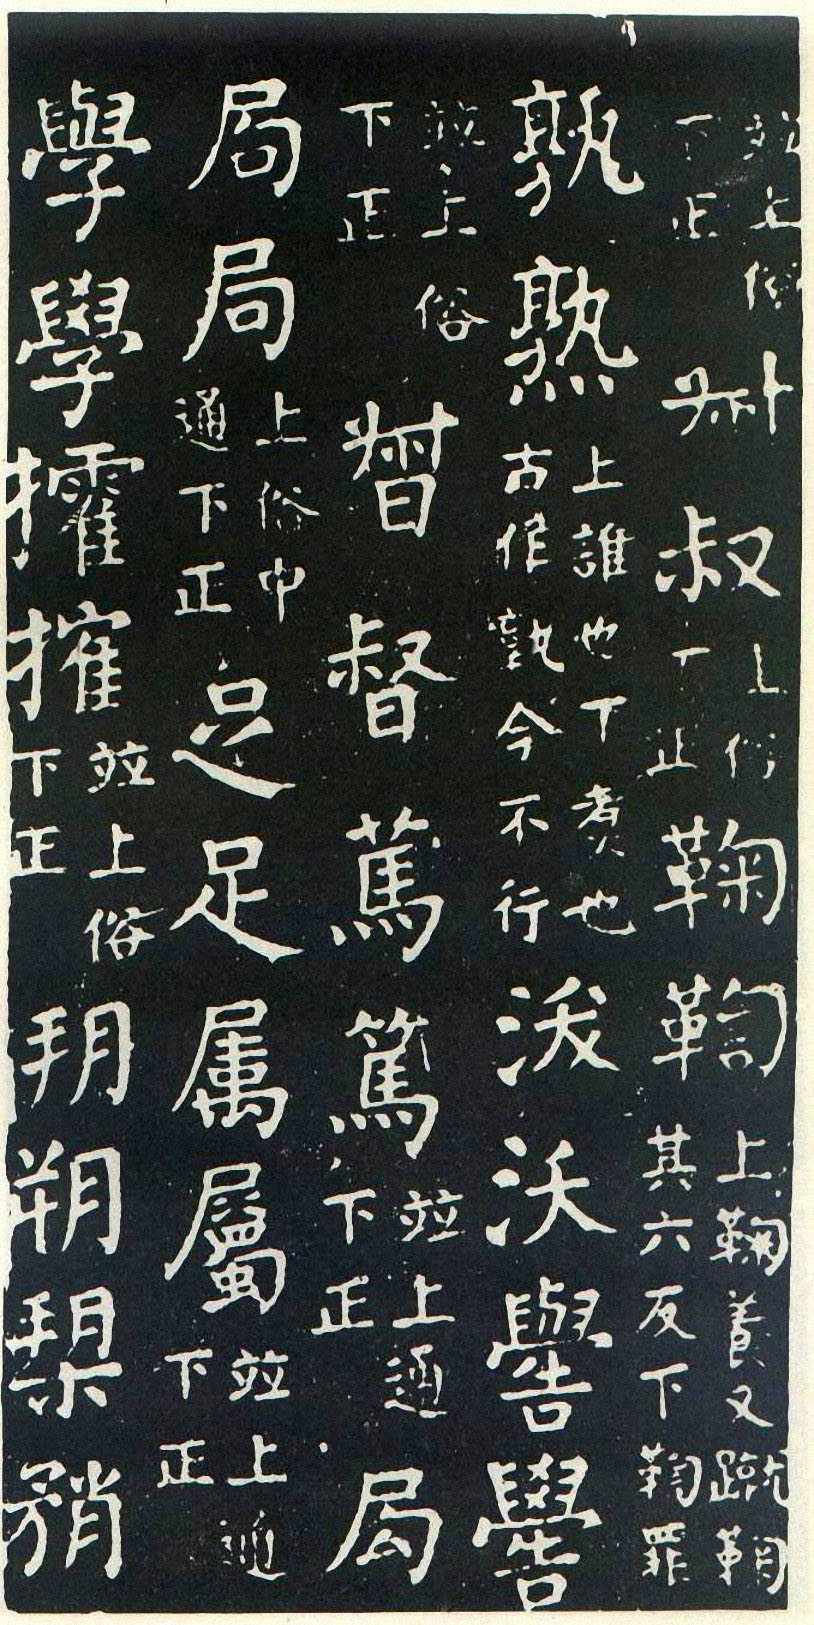 並上俗下正𫝆叔上俗下正鞠鞫上鞠養又蹴鞠其六反下鞫罪
孰熟上誰也下煑也古作𦏧今不行浂沃嚳嚳
並上俗下正督督蔦篤並上通下正局
局局上俗中通下正𠯁足属屬並上通下正
學學㩴搉並上俗下正玥朔槊矟